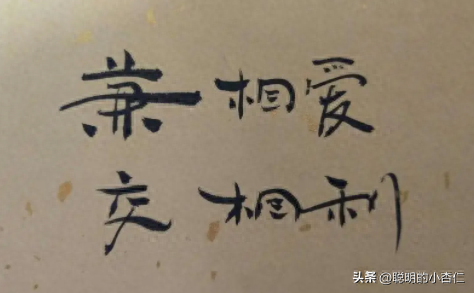 兼相爱
交相利
头条 @聪明的小杏仁